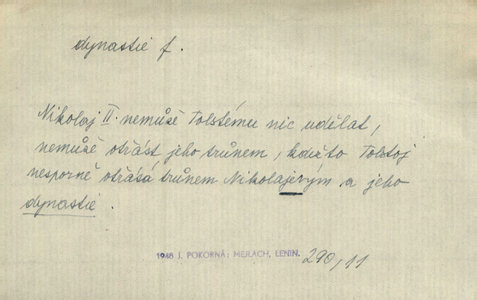 dynastie f.
Nikolaj II. nemůže Tolstému nic udělat,
nemůže otřást jeho trůnem, kdežto Tolstoj
nesporně otřásá trůnem Nikolajevým a jeho
dynastie.
1948 J. POKORNÁ: MEJLACH, LENIN. 290/11